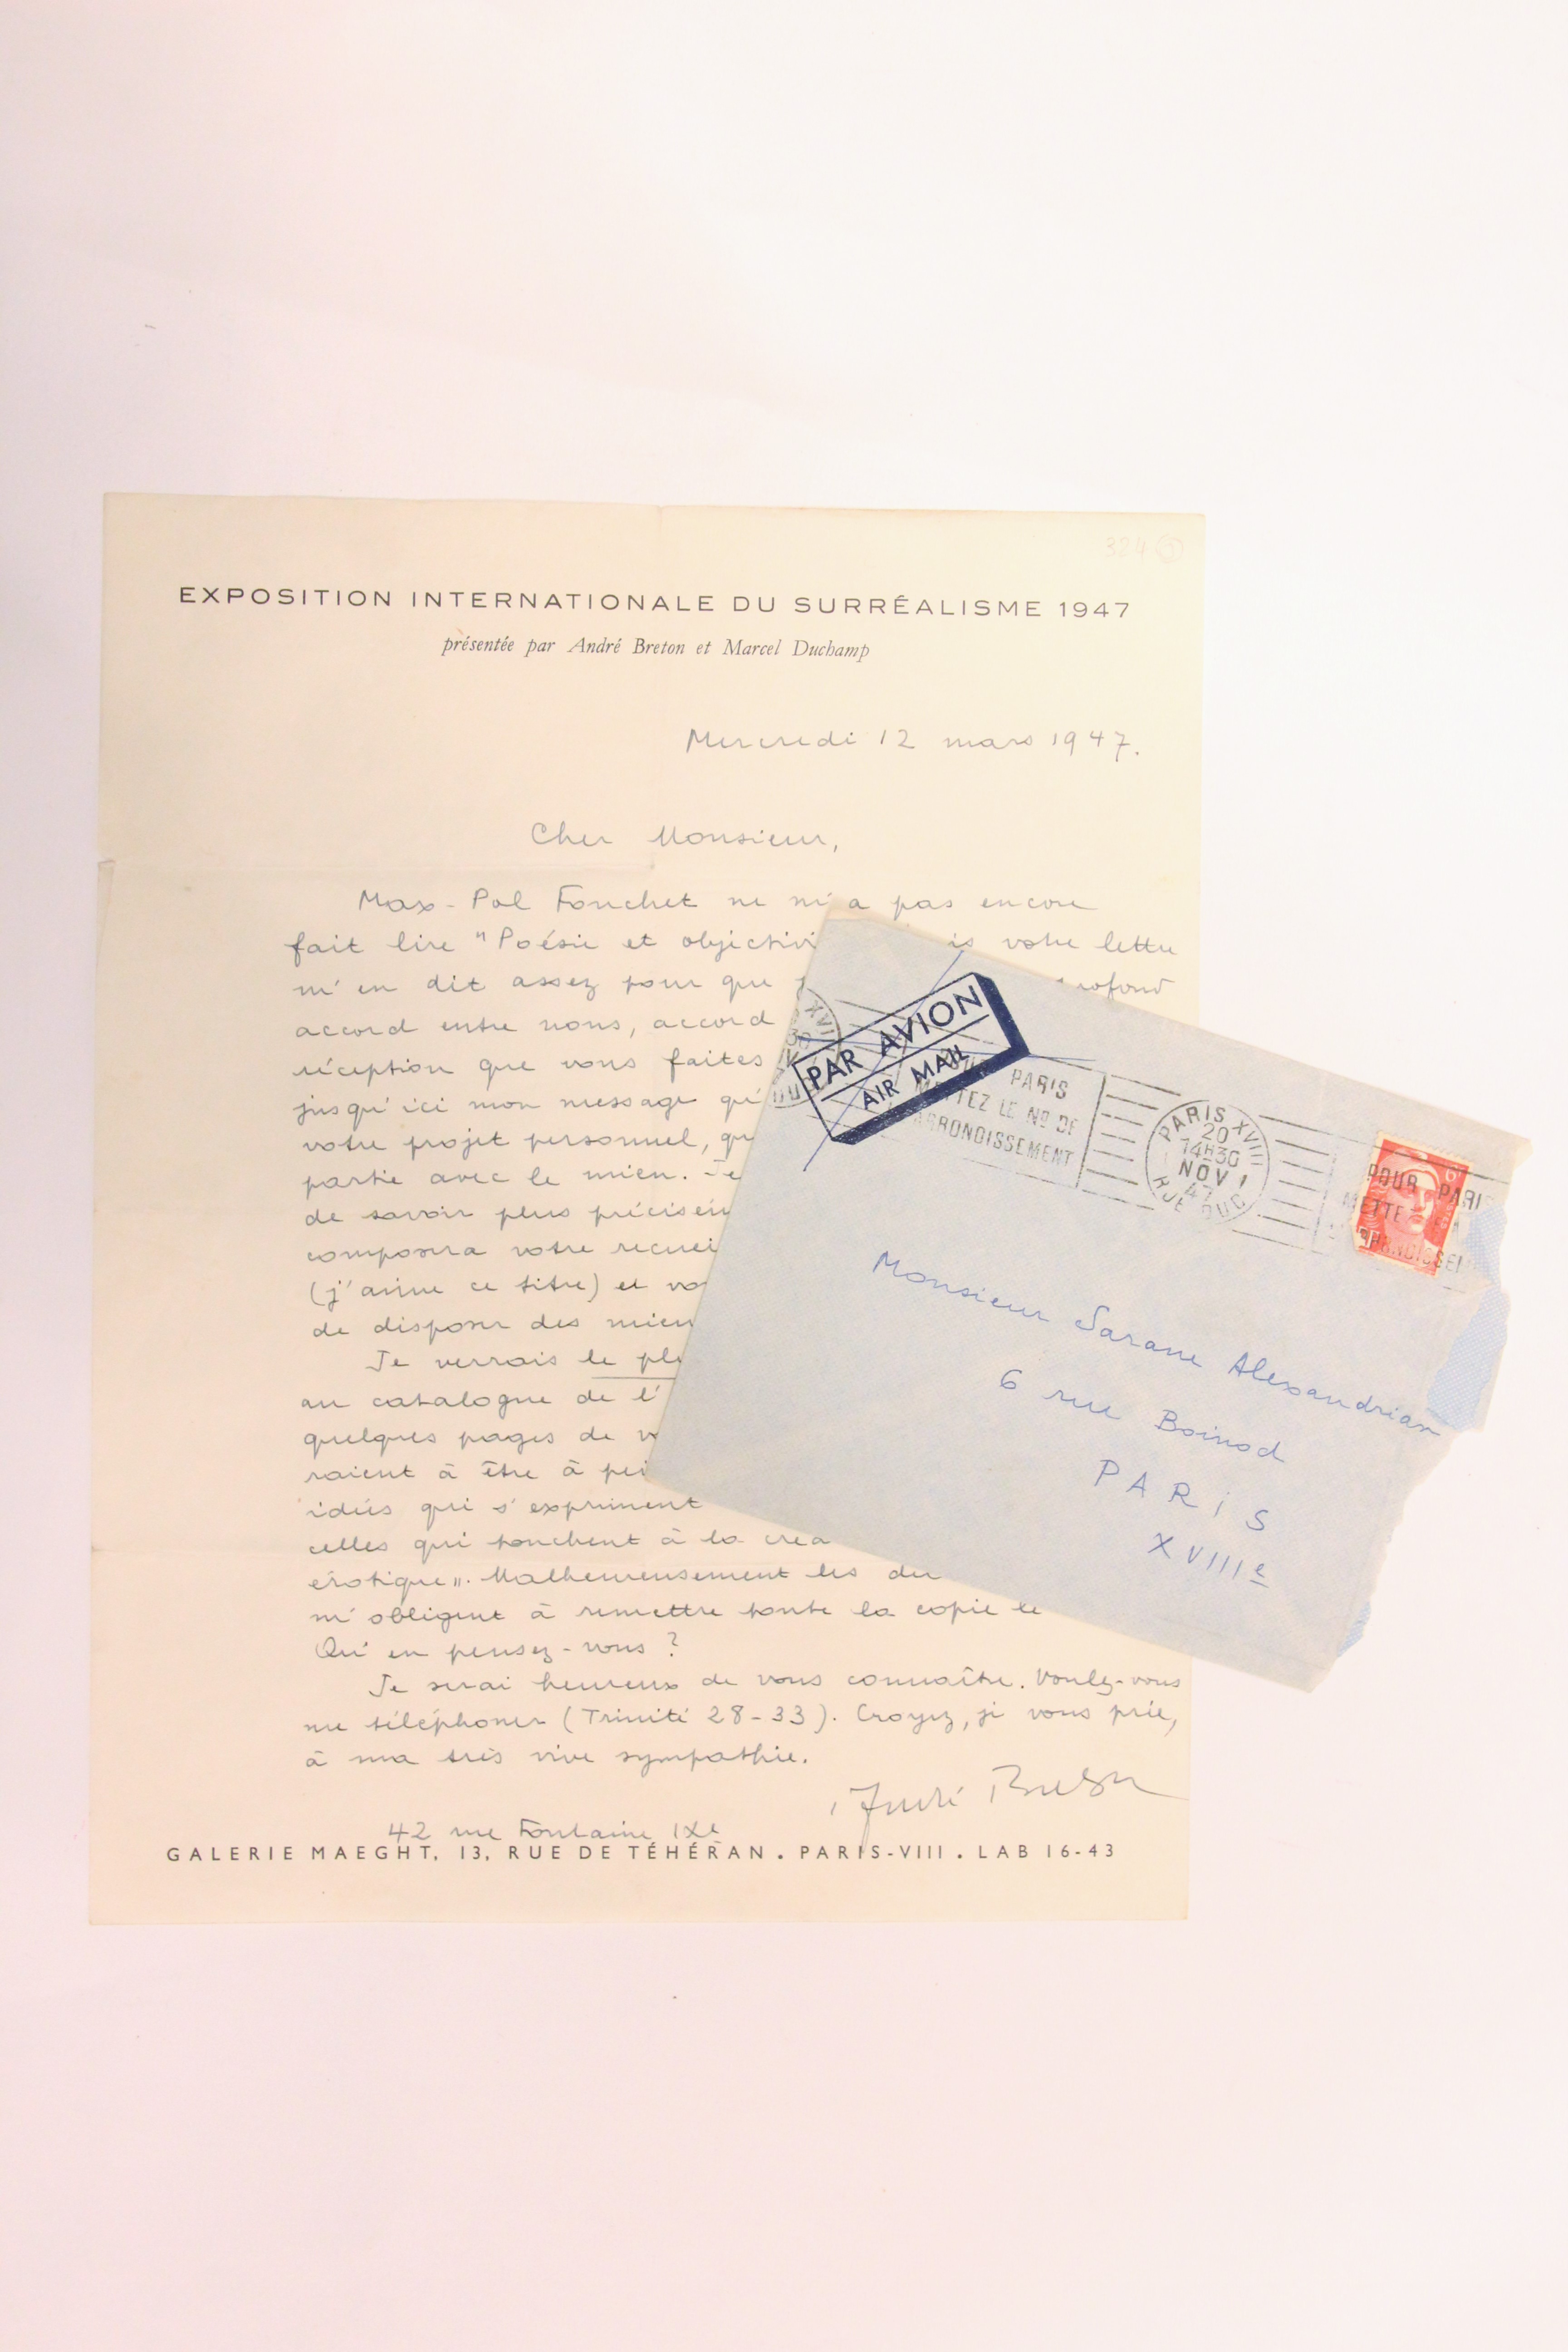 324
EXPOSITION INTERNATIONALE DU SURRÉALISME 1947
présentée par André Breton et Marcel Duchamp
Mercredi 12 mars 1947.
Cher Monsieur,
Max-Pol Fouchet ne m'a pas encore
fait lire "Poésie et objectivi votre lettre
m'en dit assez pour que rofond
accord entre nous, accord
réception que vous faites
jusqu'ici mon message qu'
votre projet personnel, qu
partie avec le mien. Je
de savoir plus précisém
composera votre recuei
(j'aime ce titre) et vo
de disposer des mien
Je verrais le pl
au catalogue de l'
quelques pages de v
raient à être à pei
idées qui s'expriment
celles qui touchent à la créa
érotique". Malheureusement les
m'obligent à remettre toute la copie le
Qu'en pensez-vous ?
Je serai heureux de vous connaître. Voulez-vous
me téléphoner (Trinité 28-33). Croyez, je vous prie,
à ma très vive sympathie.
André Breton
42 rue Fontaine IXe
GALERIE MAEGHT, 13, RUE DE TÉHÉRAN . PARIS-VIII . LAB 16-43
PAR AVION
AIR MAIL
PARIS
METTEZ LE Nº DE
ARRONDISSEMENT
PARIS XVIII
20
14H30
NOV
47
RUE DUC
POUR PARIS
METTE
Monsieur Sarane Alexandrian
6 rue Boinod
PARIS
XVIIIe